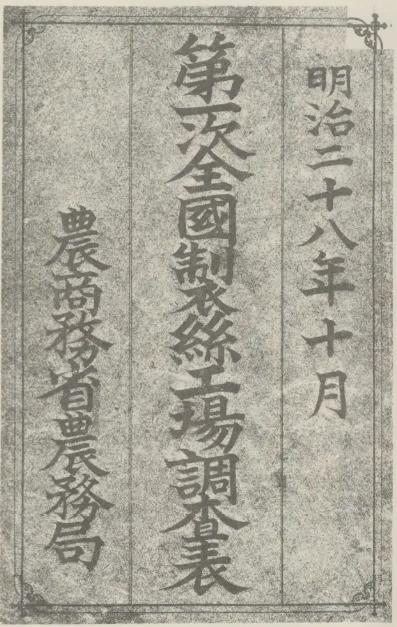 明治二十八年十月
第一次全國製絲工場調査表
農商務省農務局